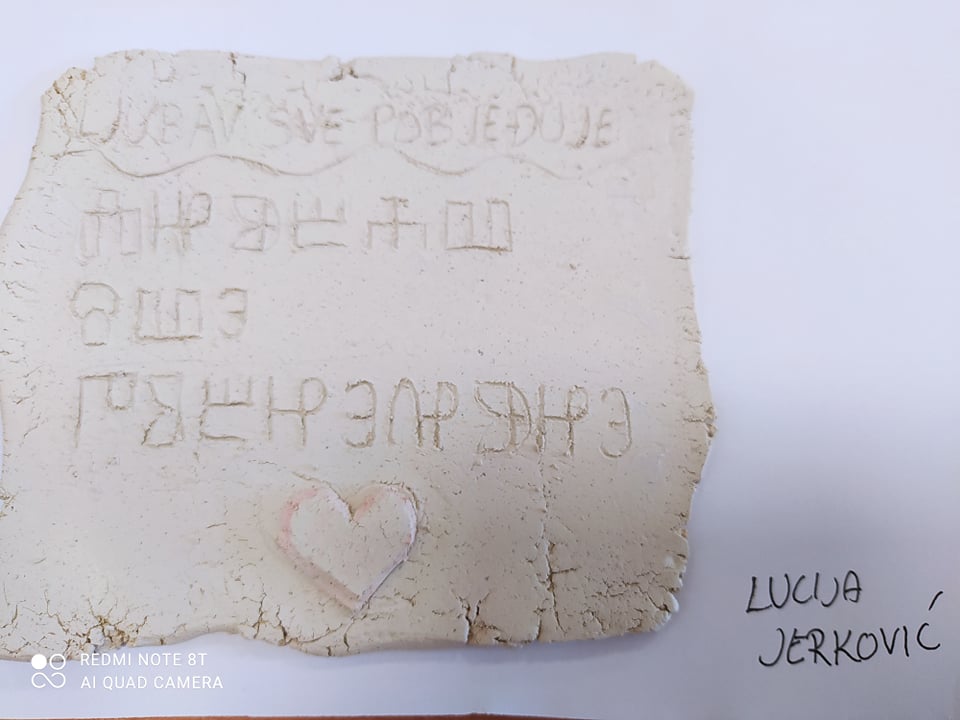 LJUBAV SVE POBJEĐUJE
ⰎⰌⰖⰁⰀⰂ
ⰔⰂⰅ
ⰒⰑⰁⰌⰅⰄⰌⰖⰌⰅ
LUCIJA
JERKOVIĆ
REDMI NOTE 8T
AI QUAD CAMERA